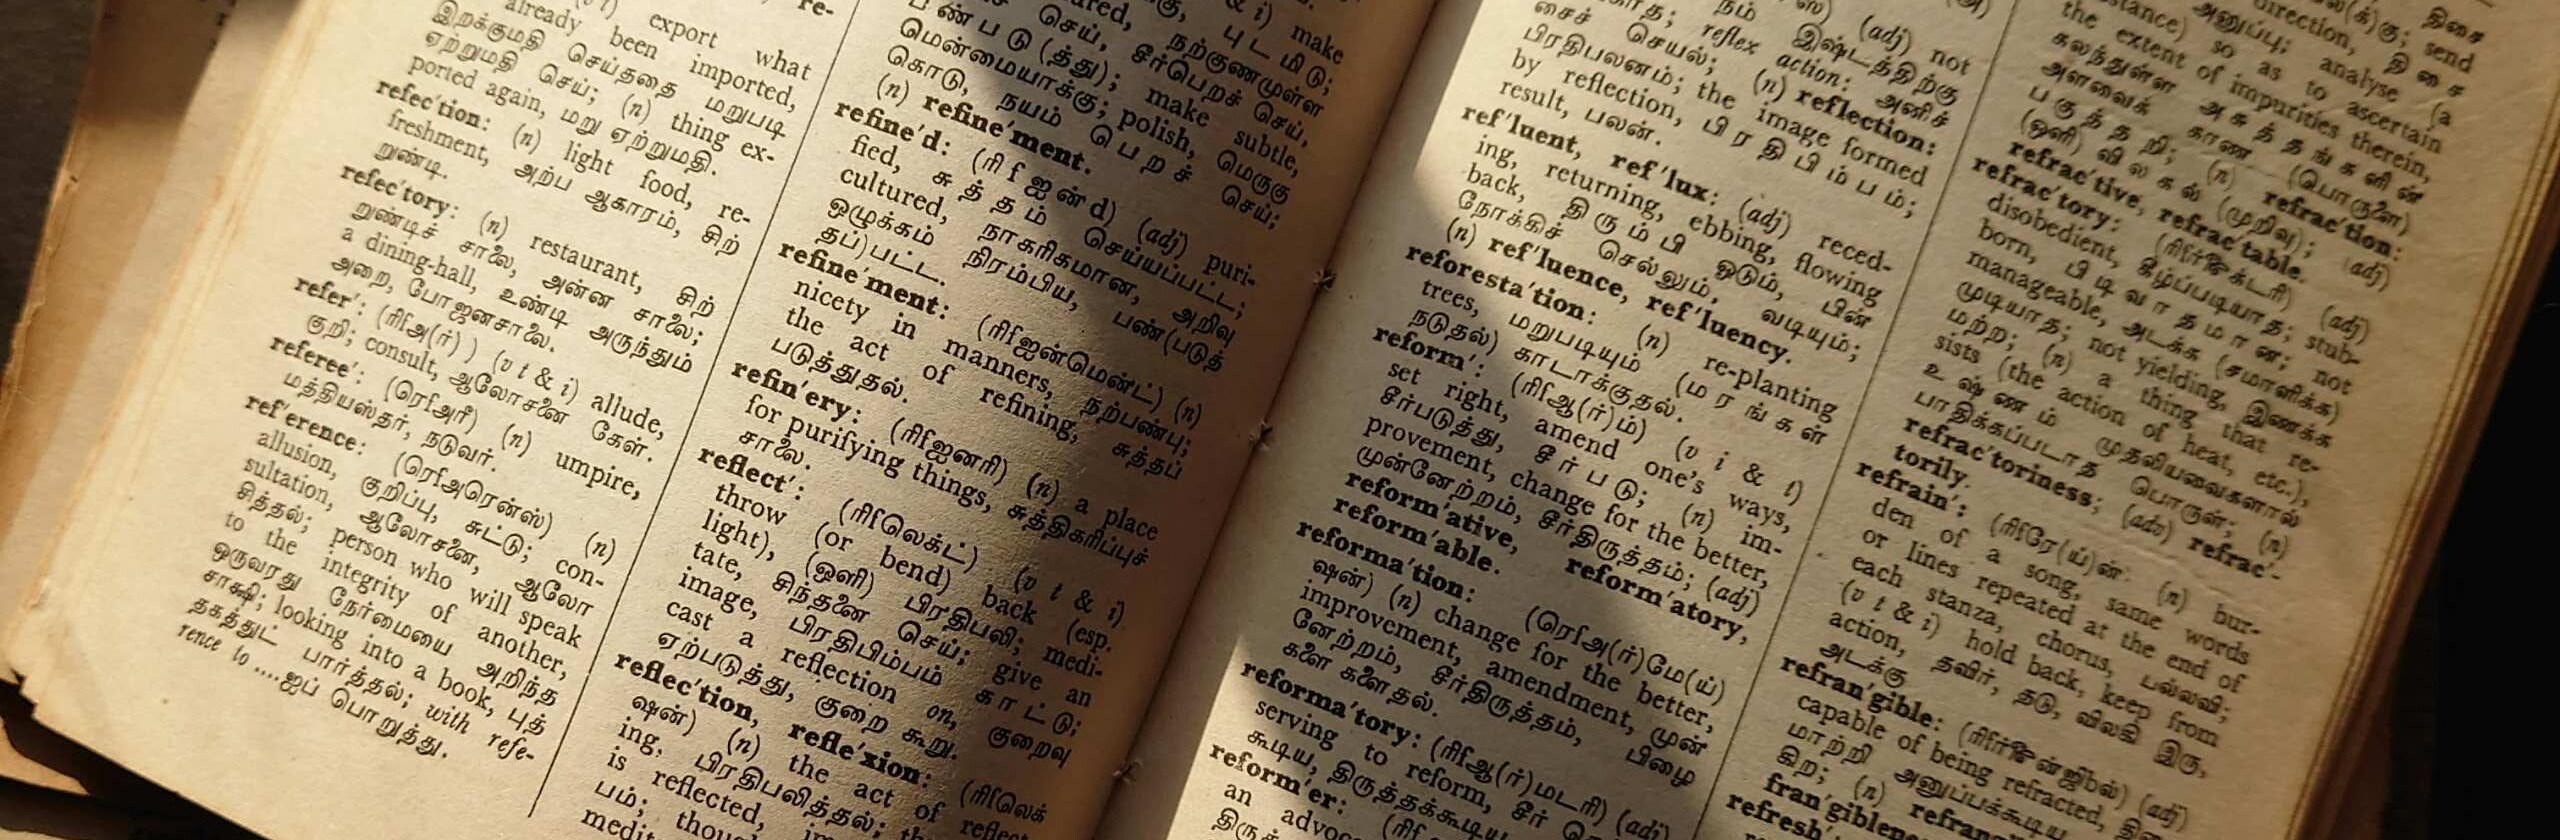 re-
export what
already been imported,
இறக்குமதி செய்ததை மறுபடி
ஏற்றுமதி செய்; (n) thing ex-
ported again, மறு ஏற்றுமதி.
refec′tion: (n) light food, re-
freshment, அற்ப ஆகாரம், சிற்
றுண்டி.
refec′tory: (n) restaurant, சிற்
றுண்டிச் சாலை, அன்ன சாலை;
a dining-hall, உண்டி அருந்தும்
அறை, போஜனசாலை.
refer′: (ரிஃஅ(ர்) ) (v t & i) allude,
குறி; consult, ஆலோசனை கேள்.
referee′: (ரெஃஅரீ) (n) umpire,
மத்தியஸ்தர், நடுவர்.
ref′erence: (ரெஃஅரென்ஸ்) (n)
allusion, குறிப்பு, சுட்டு; con-
sultation, ஆலோசனை, ஆலோ
சித்தல்; person who will speak
to the integrity of another,
ஒருவரது நேர்மையை அறிந்த
சாக்ஷி; looking into a book, புத்
தகத்துட் பார்த்தல்; with refe-
rence to ....ஐப் பொறுத்து.
& i) make
நற்குணமுள்ள
செய், சீர்பெறச் செய்,
பண்படு(த்து); make subtle,
மென்மையாக்கு; polish, மெருகு
கொடு, நயம் பெறச் செய்;
(n) refine′ment.
refine′d: (ரிஃஐன்d) (adj) puri-
fied, சுத்தம் செய்யப்பட்ட;
cultured, நாகரிகமான, அறிவு
ஒழுக்கம் நிரம்பிய, பண்(படுத்
தப்)பட்ட.
refine′ment: (ரிஃஐன்மென்ட்) (n)
nicety in manners, நற்பண்பு;
the act of refining, சுத்தப்
படுத்துதல்.
refin′ery: (ரிஃஐனரி) (n) a place
for purifying things, சுத்திகரிப்புச்
சாலை.
reflect′: (ரிஃலெக்ட்) (v t & i)
throw (or bend) back (esp.
light), (ஒளி) பிரதிபலி; medi-
tate, சிந்தனை செய்; give an
image, பிரதிபிம்பம் காட்டு;
cast a reflection on, குறைவு
ஏற்படுத்து, குறை கூறு.
reflec′tion, refle′xion: (ரிஃலெக்
ஷன்) (n) the act of reflect-
ing, பிரதிபலித்தல்;
is reflected,
பம்;
(adj) not
நம் இஷ்டத்திற்கு
reflex action: அனிச்
சைச் செயல்; (n) reflection:
பிரதிபலனம்; the image formed
by reflection, பிரதிபிம்பம்;
result, பலன்.
ref′luent, ref′lux: (adj) reced-
ing, returning, ebbing, flowing
back, திரும்பி ஓடும், பின்
நோக்கிச் செல்லும், வடியும்;
(n) ref′luence, ref′luency.
reforesta′tion: (n) re-planting
trees, மறுபடியும் (மரங்கள்
நடுதல்) காடாக்குதல்.
reform′: (ரிஃஆ(ர்)ம்) (v i & t)
set right, amend one's ways,
சீர்படுத்து, சீர்படு; (n) im-
provement, change for the better,
முன்னேற்றம், சீர்திருத்தம்; (adj)
reform′ative, reform′atory,
reform′able.
reforma′tion: (ரெஃஅ(ர்)மே(ய்)
ஷன்) (n) change for the better,
improvement, amendment, முன்
னேற்றம், சீர்திருத்தம், பிழை
களை களைதல்.
reforma′tory: (ரிஃஆ(ர்)மடரி) (adj)
serving to reform, சீர்
கூடிய, திருத்தக்கூடிய
reform′er:
an
திசை
direction, send
அனுப்பு; திசை
so as to analyse (a
the extent of ascertain
கலந்துள்ள impurities therein,
அளவைக் அசுத்தங்களின்
பகுத்தறி; காண (பொருளை)
(ஒளி) விலகல் (முறிவு); (n) refrac′tion:
refrac′tive, refrac′table. (adj)
refrac′tory: (adj)
disobedient, கீழ்ப்படியாத; stub-
born, பிடிவாதமான; not
manageable, அடக்க (சமாளிக்க)
முடியாத; not yielding, இணக்க
மற்ற; (n) a thing that re-
sists (the action of heat, etc.),
உஷ்ணம் முதலியவைகளால்
பாதிக்கப்படாத பொருள்; (n)
refrac′toriness; (adv) refrac′-
torily.
refrain′: (n) bur-
den of a song, same words
or lines repeated at the end of
each stanza, chorus, பல்லவி;
(v t & i) hold back, keep from
action, தவிர், தடு, விலகி இரு,
அடக்கு
refran′gible: (adj)
capable of being refracted,
மாற்றி அனுப்பக்கூடிய
(n)
refresh′